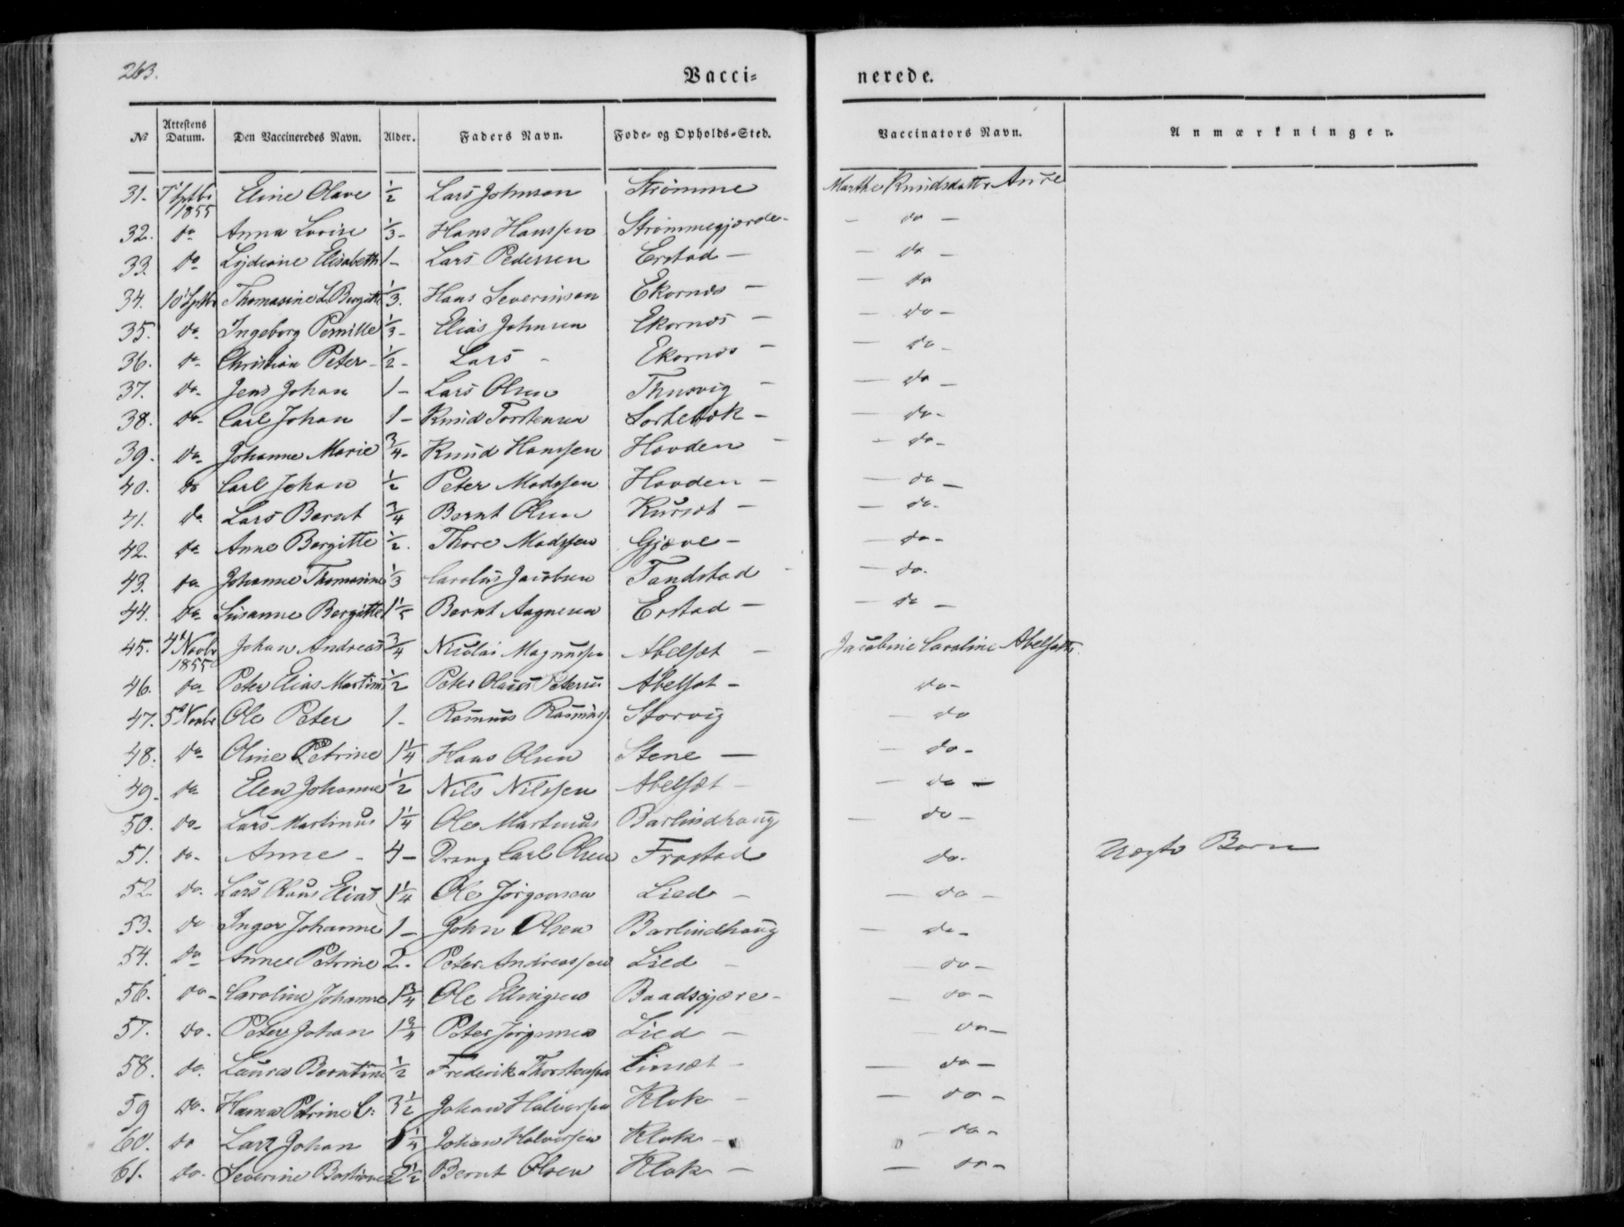 263.
Vacci=
nerede.
No Attestens Datum. Den Vaccineredes Navn. Alder. Faders Navn. Føde- og Opholds-Sted. Vaccinators Navn. Anmærkninger.
31. 7 Sptbr 1855 Eline Olave 1/2 Lars Johnsen Strømme Marthe Knudsdatter Aure
32. do Anna Lovise 1/3 - Hans Hanssen Strømmegjærde - - do -
33. do Lydiane Elisabeth 1 - Lars Pedersen Erstad - - do -
34. 10 Sptbr Thomasine L Bergitte 1/3. Hans Severinsen Ekornes - - do
35. do Ingeborg Pernille 1/3 - Elias Johnsen Ekornes - - do -
36. do Christian Peter - 1/2 - Lars - Ekornes - - do -
37. do - Jens Johan 1 - Lars Olsen Thusvig - - do -
38. do - Carl Johan 1 - Knud Torstensen Sortebæk - - do -
39. do - Johanne Marie 3/4 - Knud Hanssen Hovden - - do -
40. do Carl Johan 1/2 Peter Madssen Hovden - - do -
41. do Lars Bernt 3/4 Bernt Olsen Kursæt - - do.
42. do Anne Bergitte 1/2. Thore Madssen Gjæve - - do -
43. do Johanne Thomasine 1/3 Carolus Jacobsen Tandstad - - do.
44. do Susanne Bergitte 1 1/2 Bernt Aagnesen Erstad - - do -
45. 4 Novbr 1855 Johan Andreas 3/4 Nicolai Magnussen Abelsæt - Jacobine Caroline Abelsæth.
46. do Peter Elias Martinus 1/2 Peter Olaus Petersen Abelsæt - do -
47. 5 Novbr Ole Peter 1 - Rasmus Rasmuss. Storvig - do
48. do Oline Petrine 1 1/4 Hans Olsen Stene - - do -
49. do Elen Johanne 1/2 Nils Nilssen Abelsæt - - do -
50. do - Lars Martinus 1 1/4 Ole Martinus Barlindhaug - do -
51. do - Anne - 4 - Dreng Carl Olsen Frostad do - Uægte Barn
52. do - Lars Olaus Elias 1 1/4 Ole Jørgensen Lied - - do -
53. do Inger Johanne 1 - John Olsen Barlindhaug - do -
54. do Anne Petrine 2 - Peter Andreassen Lied - - do -
56. do - Caroline Johanne 1 3/4 Ole Ellingsen Baadsgjære - - do -
57. do - Peter Johan 1 3/4 Peter Jørgensen Lied - do -
58. do. Laura Berntine 1/2 Frederik Thorstensen Limsæt - - do -
59 do - Hanna Petrine C: 3 1/2 Johan Halvorsen Klok - - do -
60. do Lars Johan 1 1/4 Johan Halvorsen Klok - - do -
61. do - Severine Bastiane 2 1/2 Bernt Olsen Klok - - do -